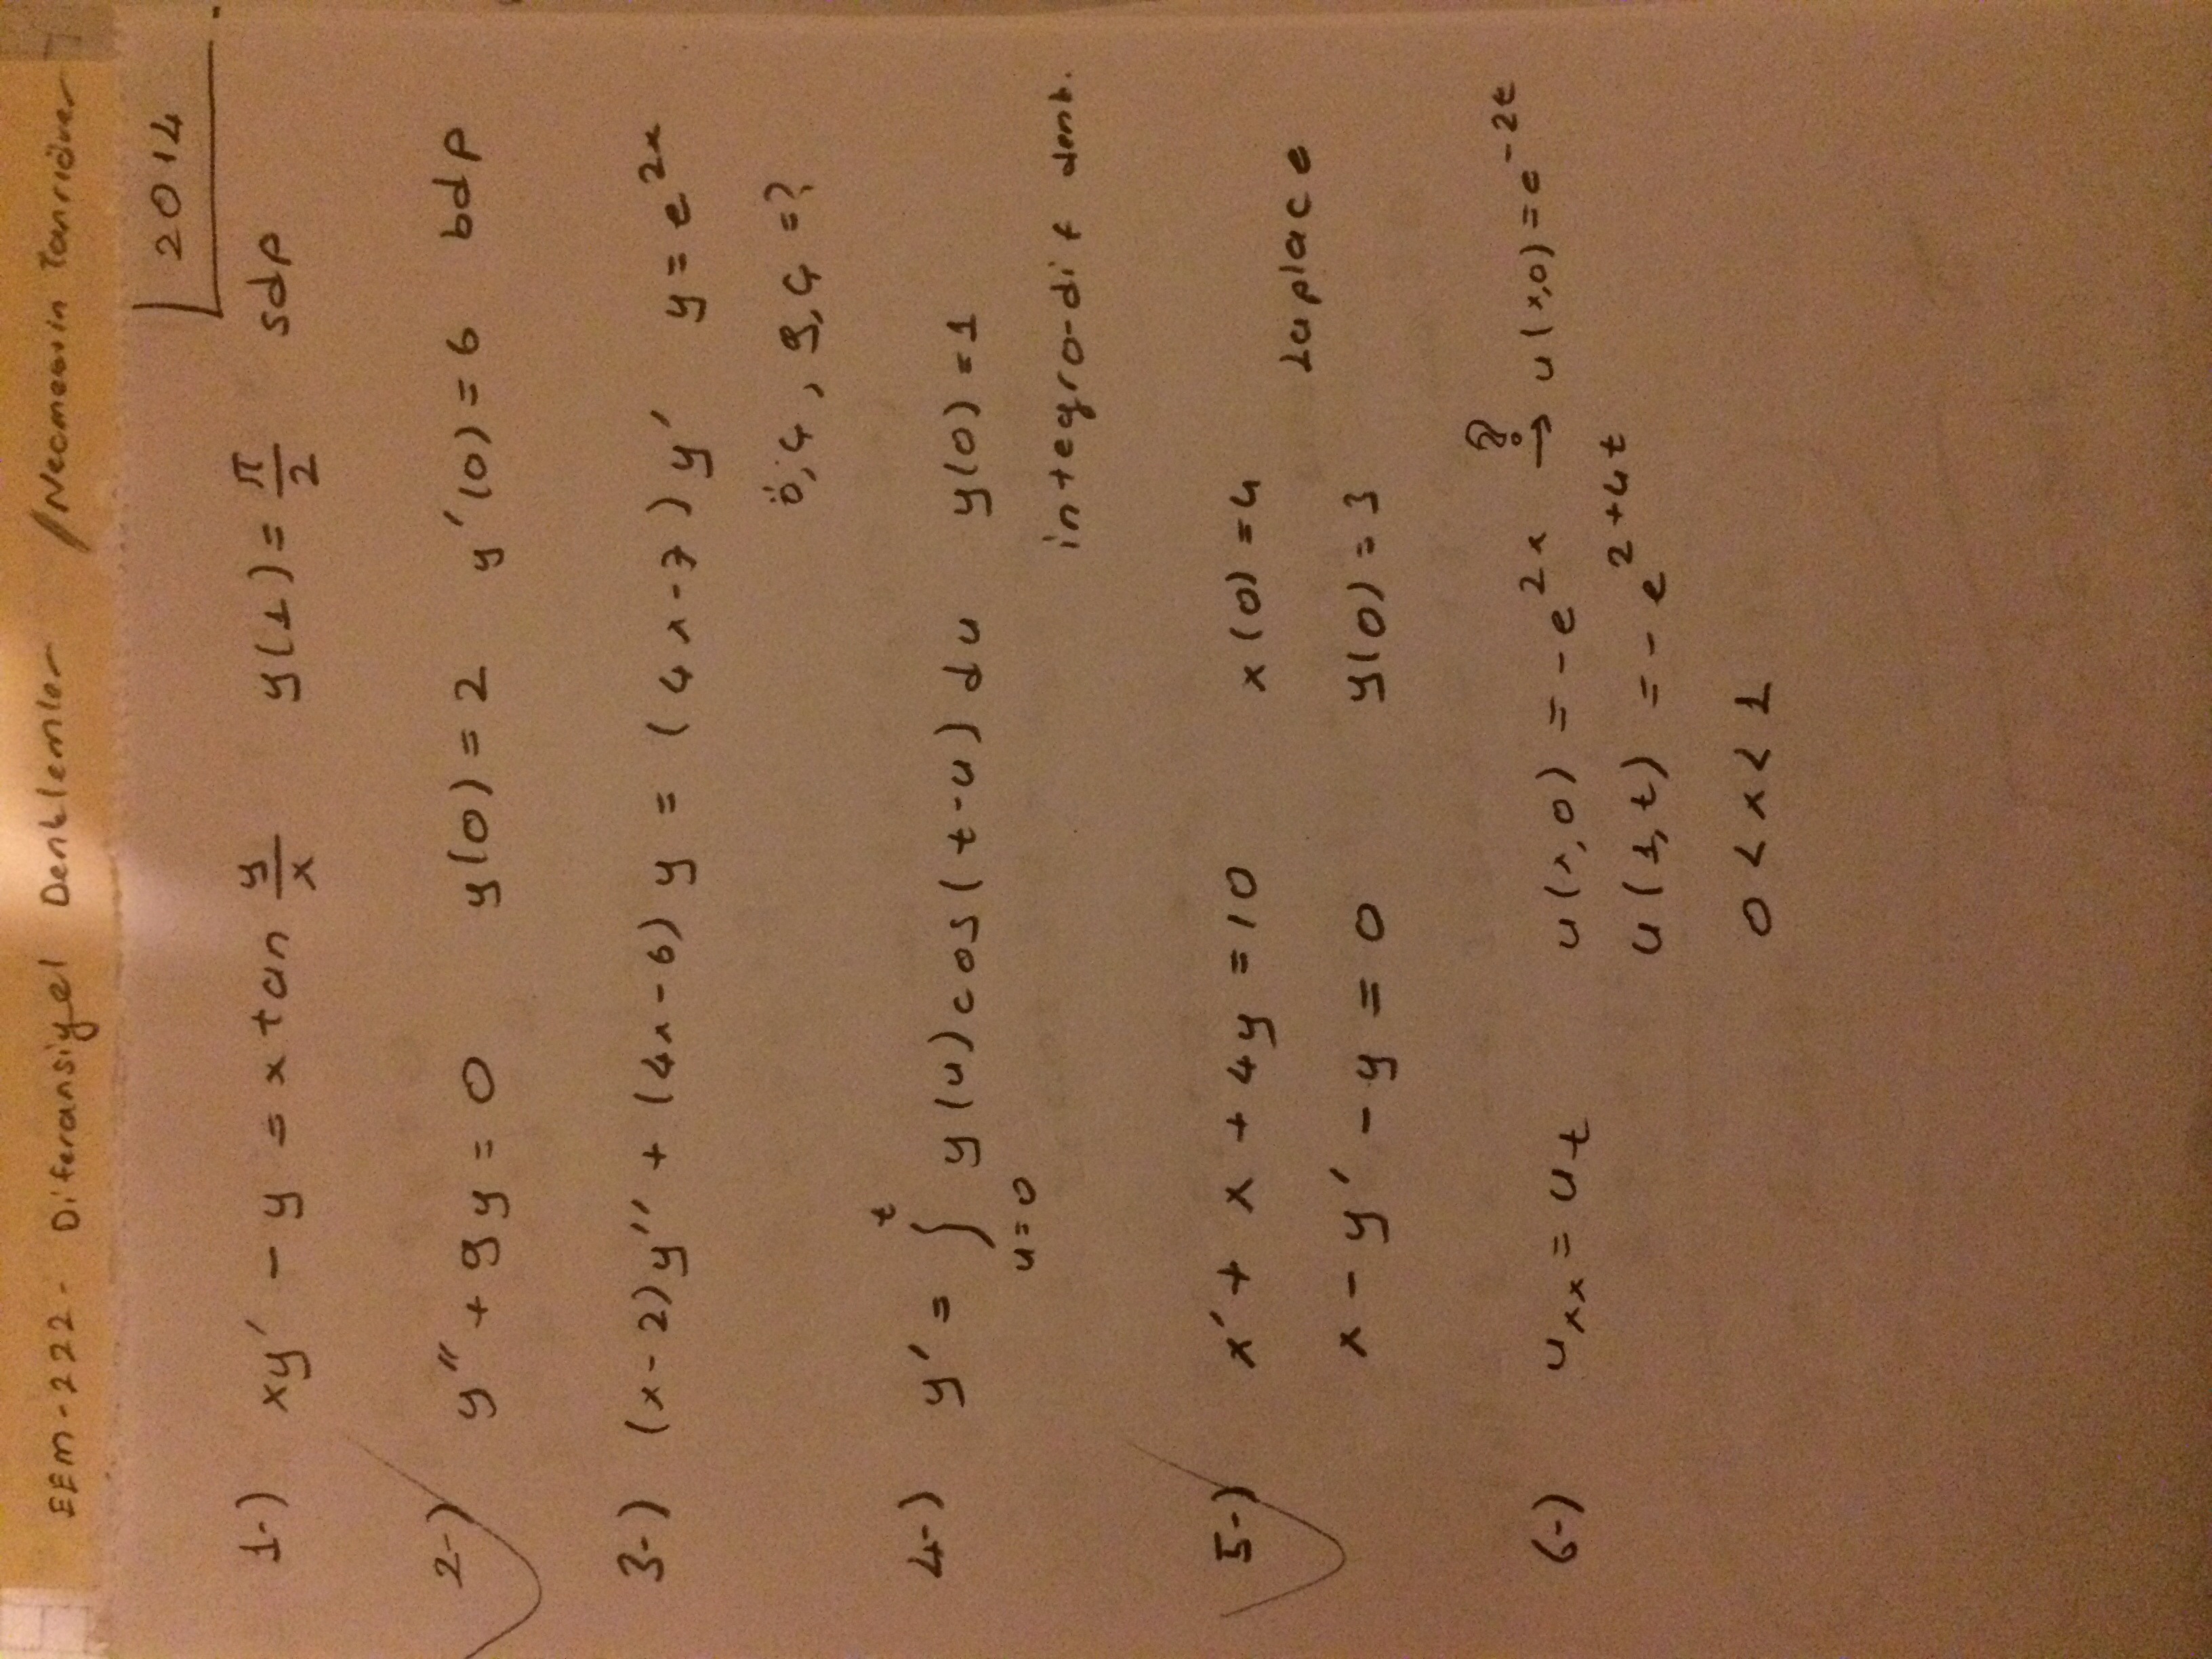 EEM-222- Diferansiyel Denklemler / Necmettin Tanrıöver
2014
1-) xy' - y = x tan y/x y(1) = π/2 sdp
2-) y'' + 9y = 0 y(0) = 2 y'(0) = 6 bdp
3-) (x-2)y'' + (4x-6)y = (4x-7)y' y = e^2x
ö,ç , g,ç =?
4-) y' = ∫_{u=0}^{t} y(u)cos(t-u)du y(0) = 1
integro-dif denk.
5-) x' + x + 4y = 10 x(0) = 4
Laplace
x - y' - y = 0 y(0) = 3
6-) u_xx = u_t u(x,0) = -e^2x ?→ u(x,0) = e^-2t
u(1,t) = -e^2+4t
0 < x < 1